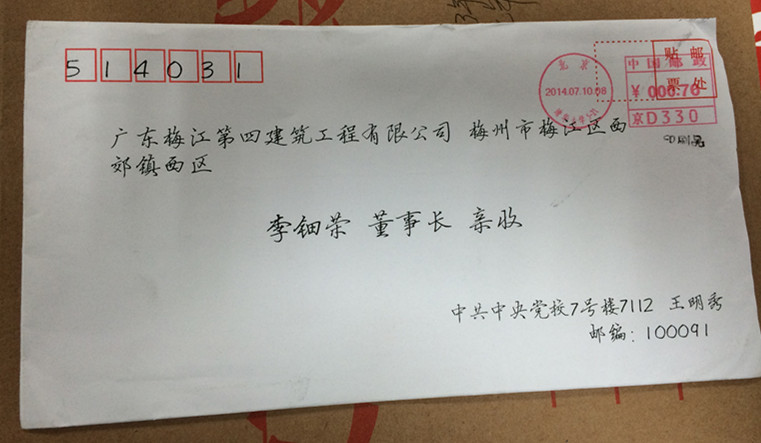 514031
贴 邮
票 处
北京
2014.07.10.08
中国邮政
¥ 000.70
京D330
印刷品
广东梅江第四建筑工程有限公司 梅州市梅江区西
郊镇西区
李钿荣 董事长 亲收
中共中央党校7号楼7112 王明秀
邮编:100091